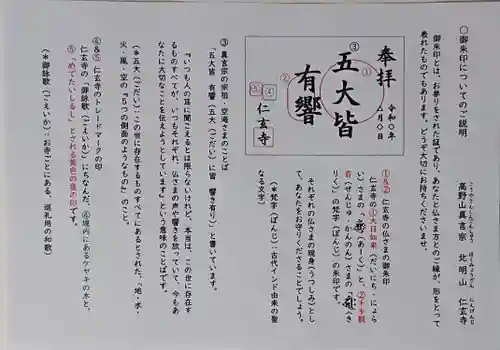 ○御朱印についてのご説明
高野山真言宗　北明山　仁玄寺
こうやさんしんごんしゅう　ほくみょうざん　にんげんじ
御朱印とは、お参りをされた証であり、あなたと仏さま方とのご縁が、形をとって
表れたものでもあります。どうぞ大切にお持ちくださいませ。
奉拝
令和〇年
△月〇日
五大皆
有響
仁玄寺
①
②
③
④
⑤
①&② 仁玄寺の仏さまの御朱印
仁玄寺の①大日如来(だいにち・にょら
い)さまの「(あーく)」と、②千手観
音(せんじゅ・かんのん)さまの「(き
りく)」の梵字(ぼんじ)の朱印です。
それぞれの仏さまの現身(うつしみ)とし
て、あなたをお守りくださることでしょう。
(＊梵字(ぼんじ):古代インド由来の聖
なる文字)
③ 真言宗の宗祖・空海さまのことば
「五大皆　有響(五大(ごだい)に皆　響き有り)」と書いています。
『いつも人の耳に聞こえるとは限らないけれど、本当は、この世に存在す
るものすべてが、いつもそれぞれ、仏さまの声や響きを放っていて、今もあ
なたに大切なことを伝えようとしています』という意味のことばです。
(＊五大(ごだい):世に存在するものすべてにあるとされた、「地・水・
火・風・空の『５つの側面のようなもの』」のこと)
④&⑤ 仁玄寺のトレードマークの印
仁玄寺の「御詠歌(ごえいか)」にちなんだ、④境内にあるケヤキの木と、
⑤「めでたいしるし」とされる紫色の雲の印です。
(＊御詠歌(ごえいか):お寺ごとにある、巡礼用の和歌)